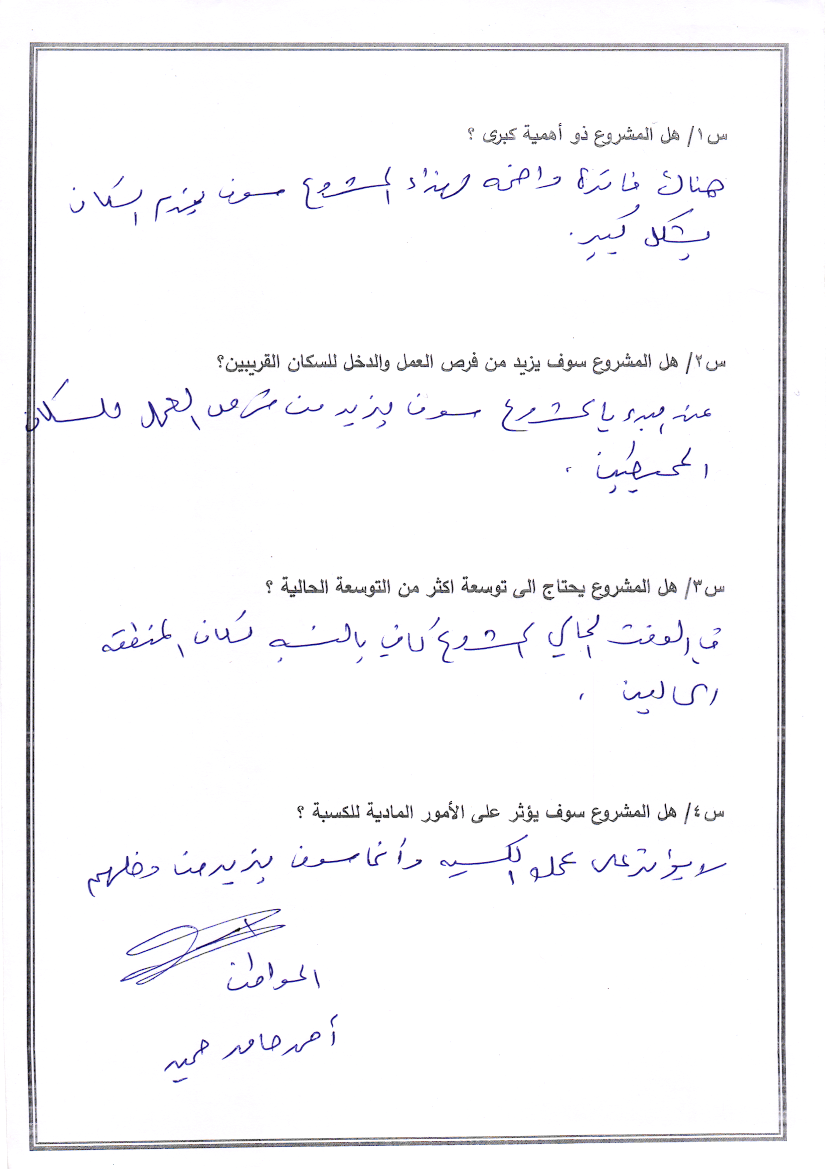 س١/ هل المشروع ذو أهمية كبرى ؟
هناك فائدة واضحه لهذا المشروع سوف يخدم السكان
بشكل كبير.
س٢/ هل المشروع سوف يزيد من فرص العمل والدخل للسكان القريبين؟
عند البدء بالمشروع سوف يزيد من فرص العمل للسكان
المحيطين .
س٣/ هل المشروع يحتاج الى توسعة اكثر من التوسعة الحالية ؟
في الوقت الحالي المشروع كافي بالنسبه لسكان المنطقه
الحالين .
س٤/ هل المشروع سوف يؤثر على الأمور المادية للكسبة ؟
لا يؤثر على عمل الكسبه وأنما سوف يزيد من دخلهم
المواطن
أحمد حامد حميد